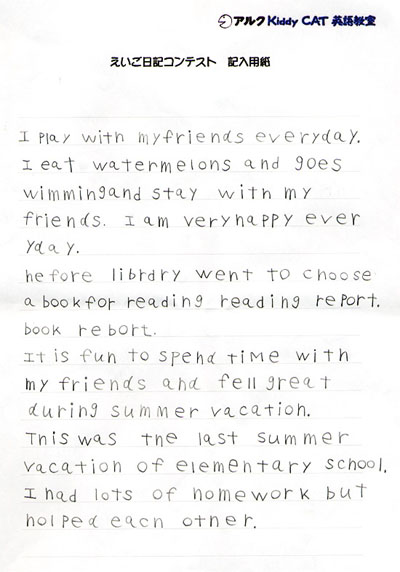 アルク Kiddy CAT 英語教室
えいご日記コンテスト 記入用紙
I play with myfriends everyday.
I eat watermelons and goes
wimmingand stay with my
friends. I am veryhappy ever
yday.
hefore librdry went to choose
a bookfor reading reading rePort.
book rebort.
It is fun to spend time with
my friends and fell great
during summer vacation.
This was the last summer
vacation of elementary school.
I had lots of homework but
holped each other.